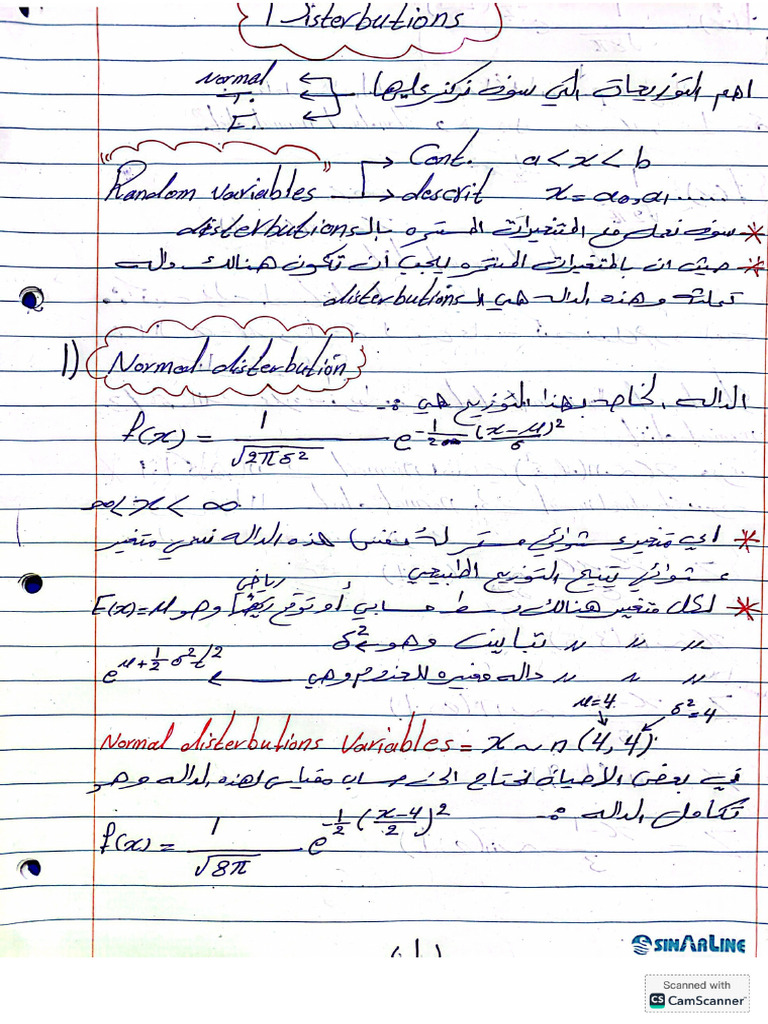 Disterbutions
اهم التوزيعات التي سوف نركز عليها Normal
T.
F.
"Random variables" Cont. a < x < b
descrit x = a0, a1, ......
* سوف نعمل مع المتغيرات المستمره بالـ disterbutions
* حيث ان بالمتغيرات المستمره يجب أن تكون هنالك داله
تمثله وهذه الداله هي الـ disterbutions
1) Normal disterbution
الداله الخاصه بهذا التوزيع هي :-
f(x) = 1/√2πδ² e^-1/2 (x-μ/δ)²
∞ < x < ∞
* اي متغير عشوائي مستمر له نفس هذه الداله نسمي متغير
عشوائي يتبع التوزيع الطبيعي
* لكل متغير هنالك وسط حسابي أو توقع رياضي وهو E(x)=μ
〃 〃 〃 تباين وهو δ²
〃 〃 〃 داله مميزه للعزوم وهي ← e^μ+1/2 δ²t/2
μ=4 δ²=4
Normal disterbutions Variables = x ~ n (4, 4)
في بعض الأحيان نحتاج الى حساب مقياس لهذه الداله وهو
تكامل الداله :-
f(x) = 1/√8π e^-1/2 (x-4/2)²
SINARLINE
Scanned with
CS CamScanner